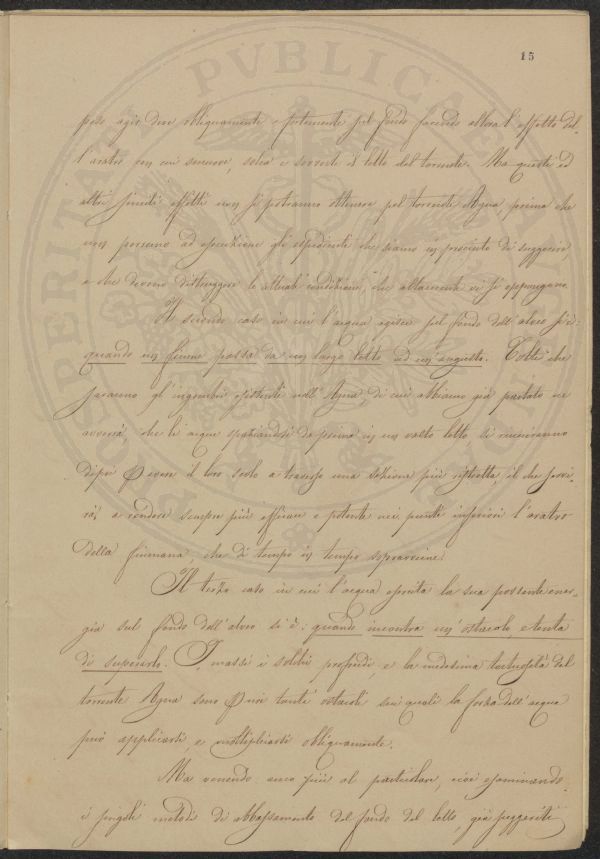 PVBLICA
PROSPERITAT
15
peso agir deve obliquamente e fortemente sul fondo facendo allora l'effetto del-
l'aratro con cui smuove, solca e sorveste il letto del torrente. Ma questi ed
altri simili effetti non si potranno ottenere pel torrente Ayna, prima che
non pervano ad esecuzione gli espedienti che siamo in procinto di suggerire,
e che devono distruggere le attuali condizioni, che altamente vi si oppongono.
Il secondo caso in cui l'acqua agisce sul fondo dell'alveo si è:
quando un fiume passa da un largo letto ad un'angusto. Tolti che
saranno gl'ingombri esistenti nell'Ayna, di cui abbiamo già parlato ne
avverrà, che le acque spaziandosi da prima in un vasto letto, si riuniranno
dipoi avere il loro scolo a traverso una sezione più ristretta il che servi-
rà a rendere sempre più efficace e potente nei punti inferiori l'aratro
della fiumana, che di tempo in tempo sopravviene.
Il terzo caso in cui l'acqua esercita la sua possente ener-
gia sul fondo dell'alveo si è: quando incontra un'ostacolo e tenta
di superarlo. I massi i soliti profondi, e la medesima tortuosità del
torrente Ayna sono qui tanti ostacoli sui quali la forza dell'acqua
può applicarsi, e moltiplicarsi obliquamente.
Ma venendo anco più al particolare, cioè esaminando
i singoli metodi di abbassamento del fondo del letto, già suggeriti